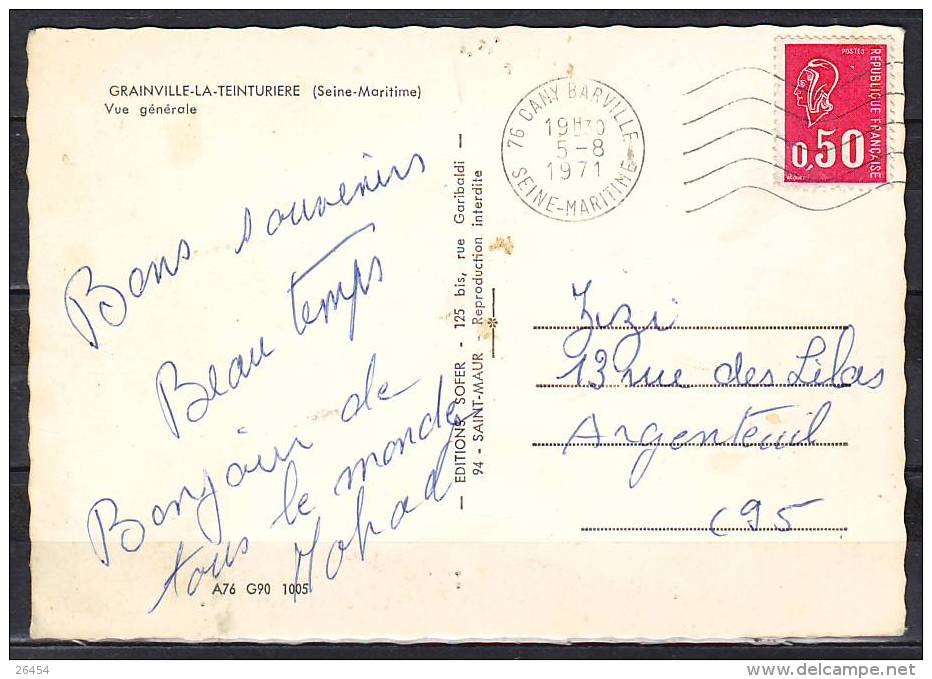 GRAINVILLE-LA-TEINTURIERE (Seine-Maritime)
Vue générale
Bons souvenirs
Beau temps
Bonjour de
tous le monde
A76 G90 1005
— EDITIONS SOFER - 125 bis, rue Garibaldi —
94 - SAINT-MAUR - Reproduction interdite
76 CANY BARVILLE
19H30
5-8
1971
SEINE-MARITIME
POSTES
REPUBLIQUE FRANÇAISE
0,50
Zizi
13 rue des Lilas
Argenteuil
(95
26454
www.delcampe.net